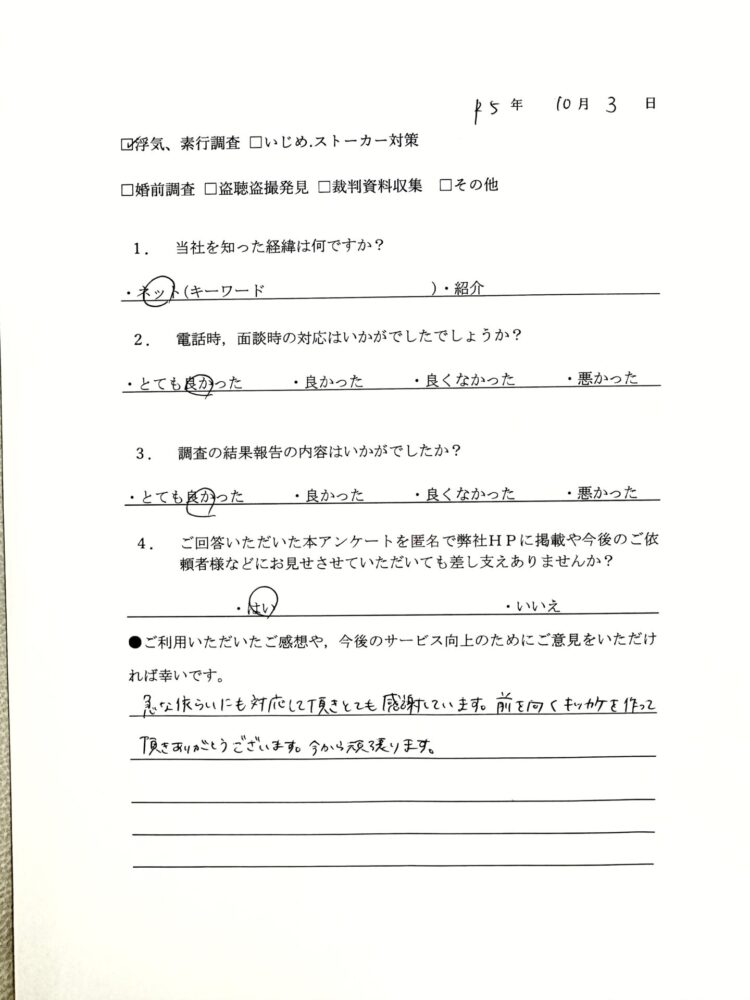 R5年 10月 3 日
☑浮気、素行調査 □いじめ.ストーカー対策
□婚前調査 □盗聴盗撮発見 □裁判資料収集 □その他
1. 当社を知った経緯は何ですか？
・ネット(キーワード )・紹介
2. 電話時，面談時の対応はいかがでしたでしょうか？
・とても良かった ・良かった ・良くなかった ・悪かった
3. 調査の結果報告の内容はいかがでしたか？
・とても良かった ・良かった ・良くなかった ・悪かった
4. ご回答いただいた本アンケートを匿名で弊社ＨＰに掲載や今後のご依
頼者様などにお見せさせていただいても差し支えありませんか？
・はい ・いいえ
●ご利用いただいたご感想や，今後のサービス向上のためにご意見をいただけ
れば幸いです。
急な依らいにも対応して頂きとても感謝しています。前を向くキッカケを作って
頂きありがとうございます。今から頑張ります。